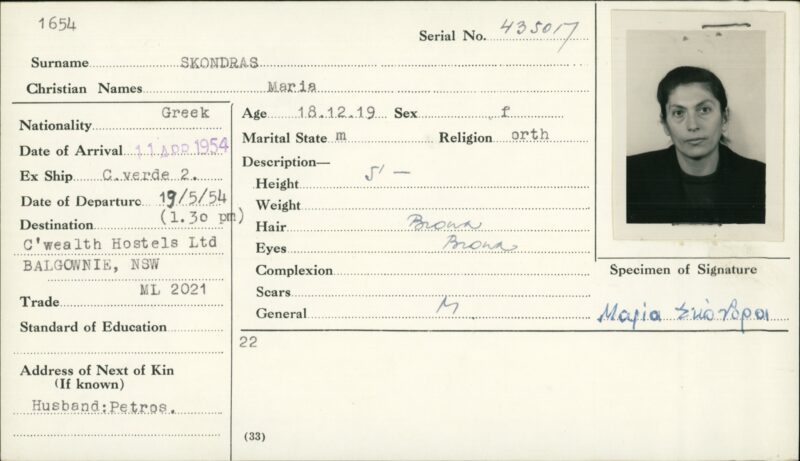 1654
Serial No. 435017
Surname SKONDRAS
Christian Names Maria
Nationality Greek
Date of Arrival 11 APR 1954
Ex Ship C.verde 2.
Date of Departure 19/5/54
(1.30 pm)
Destination
C'wealth Hostels Ltd
BALGOWNIE, NSW
ML 2021
Trade
Standard of Education
Address of Next of Kin
(If known)
Husband:Petros.
Age 18.12.19 Sex f
Marital State m Religion orth
Description—
Height 5' —
Weight
Hair Brown
Eyes Brown
Complexion
Scars
General M
22
(33)
Specimen of Signature
Μαρία Σκόνδρα